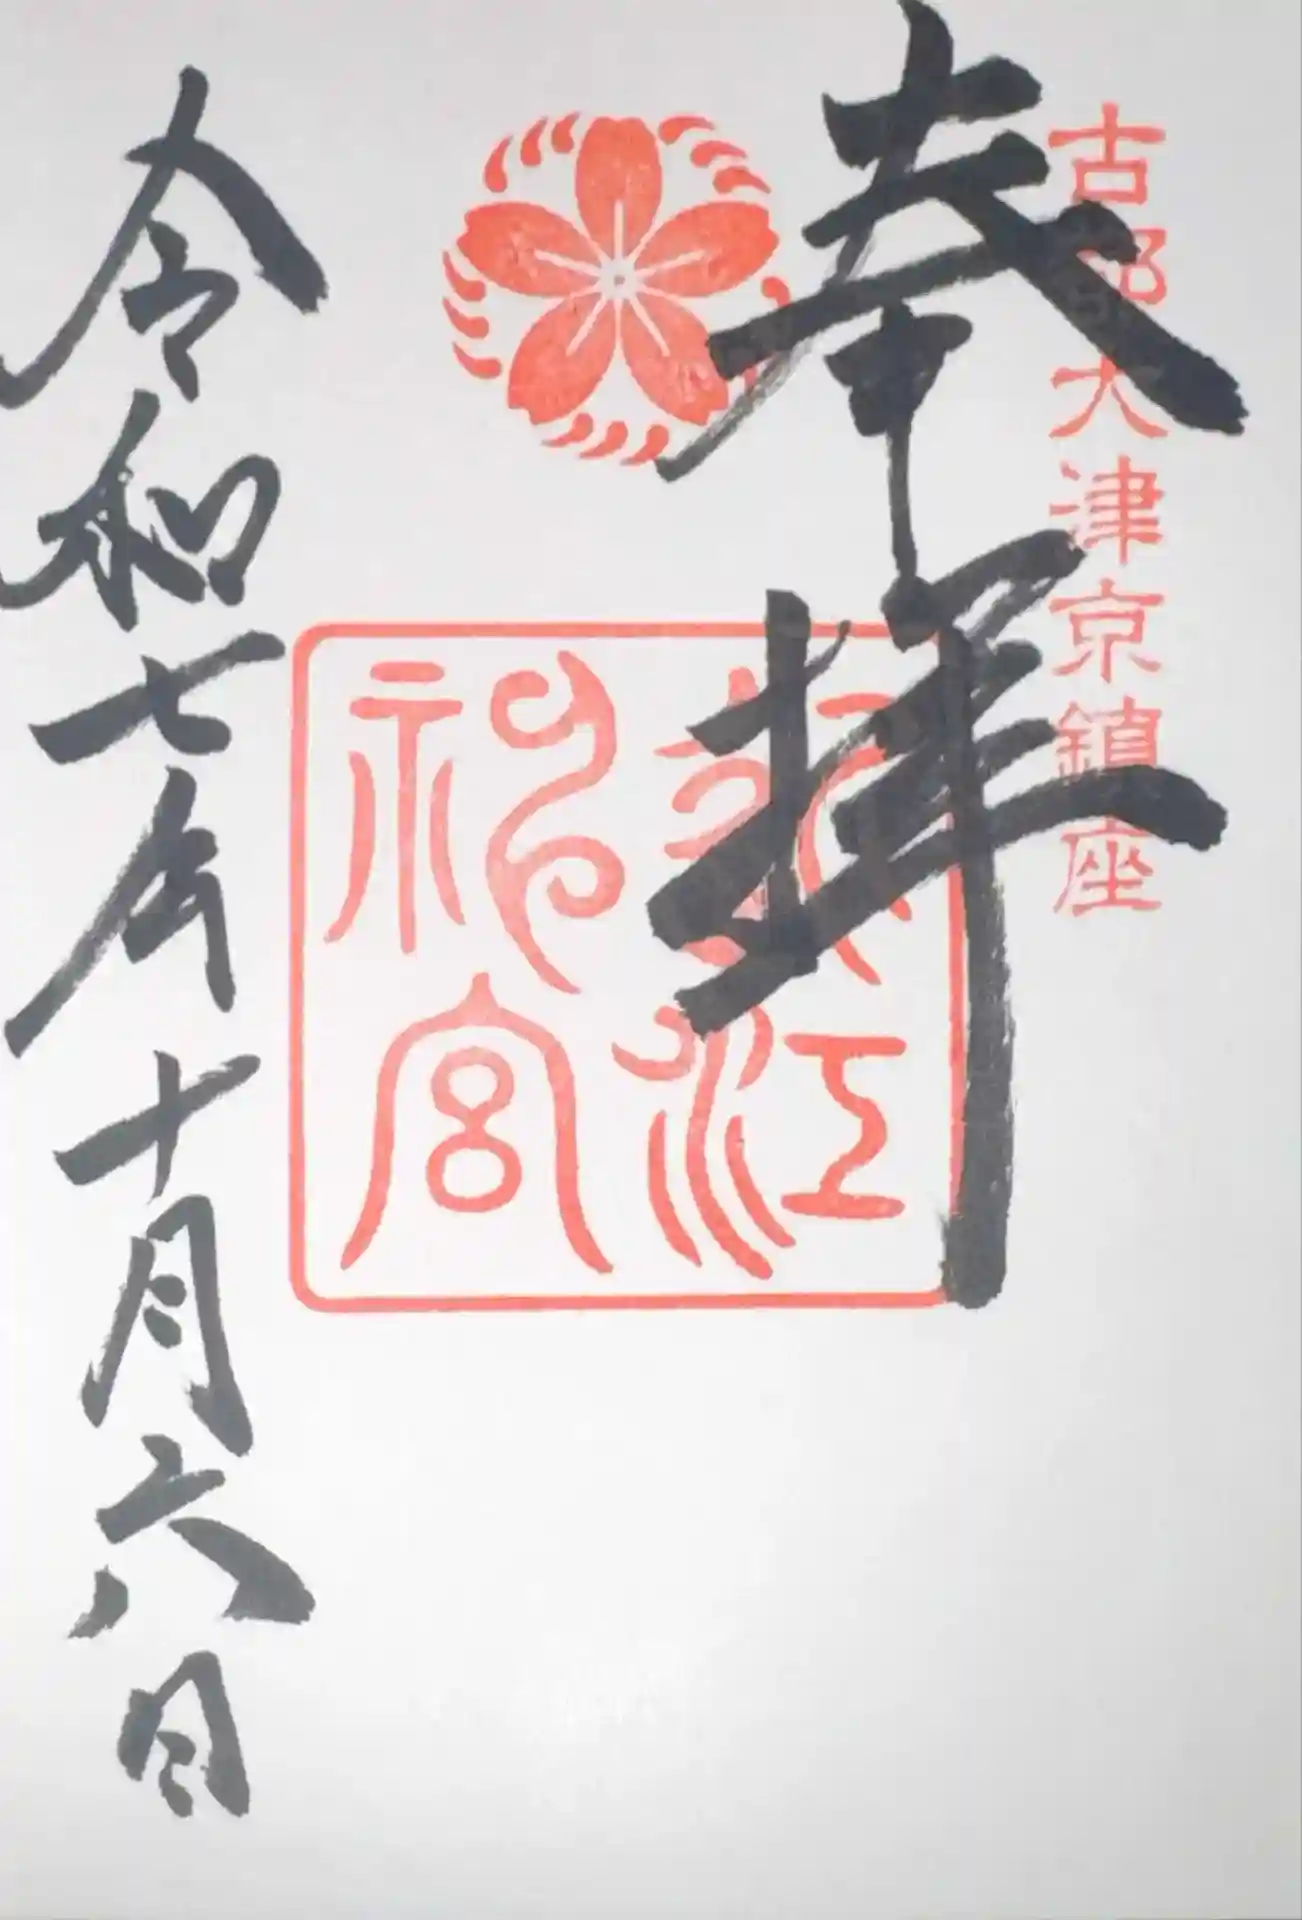 古都大津京鎮座
奉拝
近江
神宮
令和七年十月六日